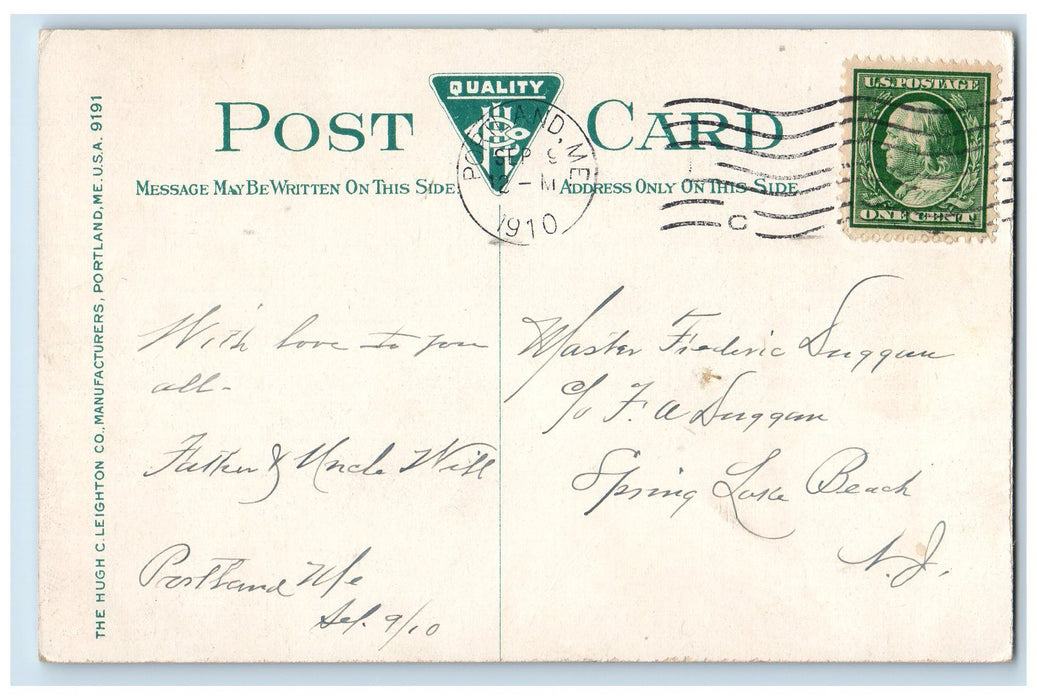 THE HUGH C. LEIGHTON CO., MANUFACTURERS, PORTLAND, ME. U.S.A. 9191
POST CARD
QUALITY
MESSAGE MAY BE WRITTEN ON THIS SIDE
ADDRESS ONLY ON THIS SIDE
PORTLAND, ME.
SEP 9
12 - M
1910
C
U.S. POSTAGE
ONE CENT
With love to you
all-
Father & Uncle Will
Portland Me
Sep. 9/10
Master Frederic Duggan
c/o F. A Duggan
Spring Lake Beach
N.J.